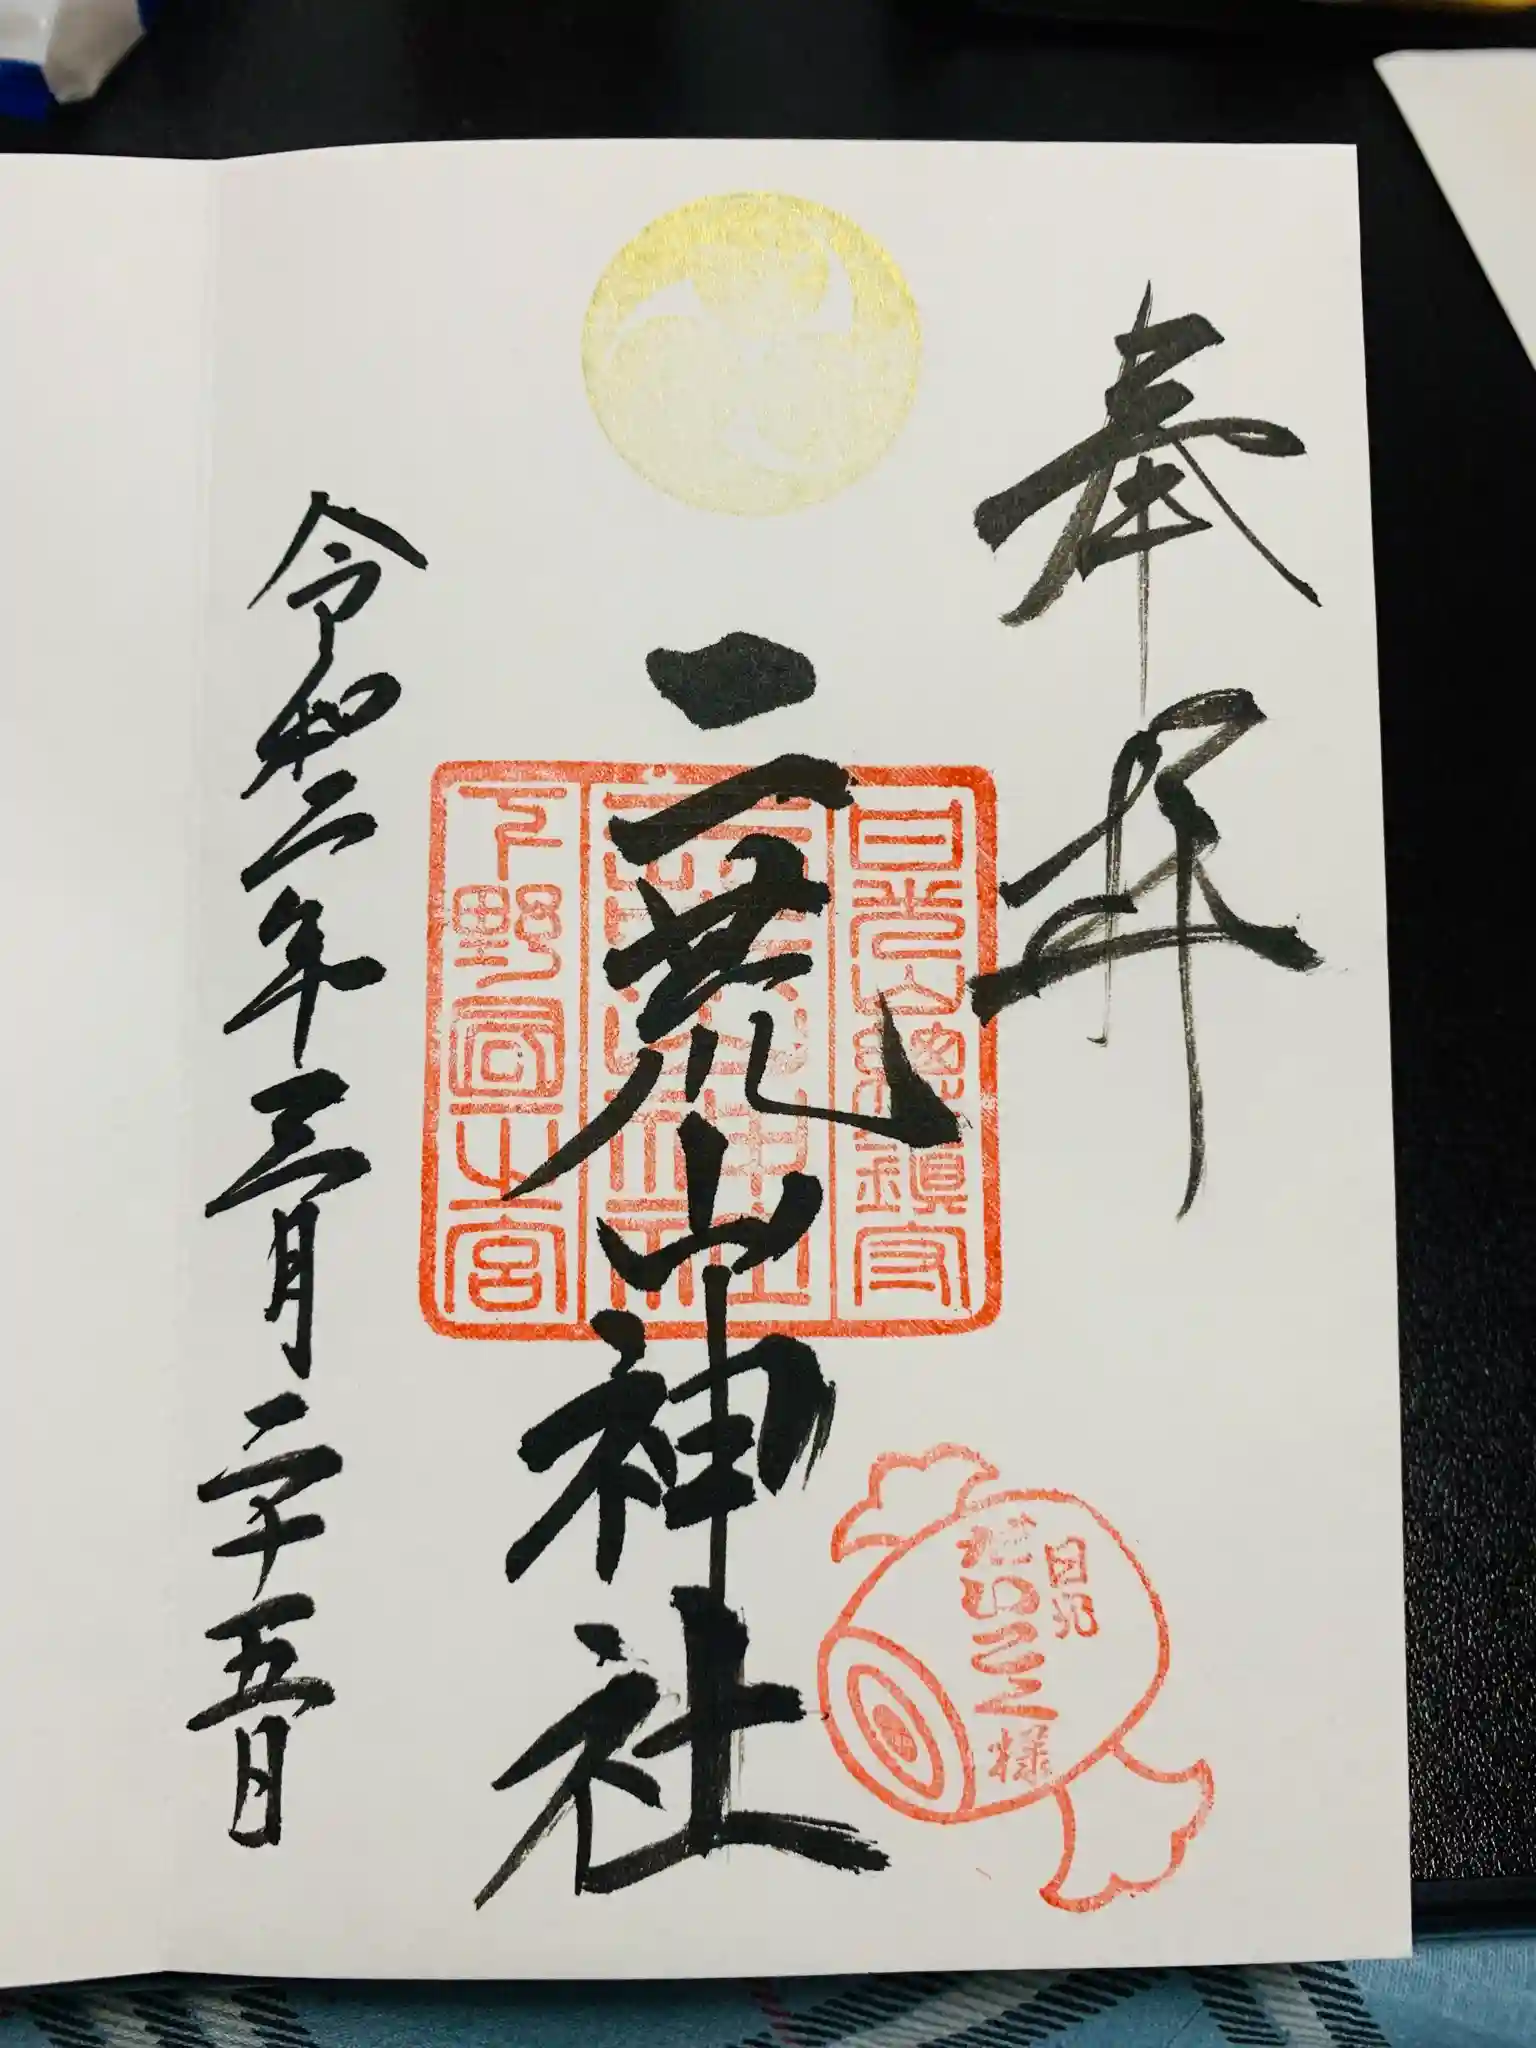 奉拝
日光山總鎮守
二荒山神社
下野國一之宮
日光
だいこく様
令和二年三月二十五日